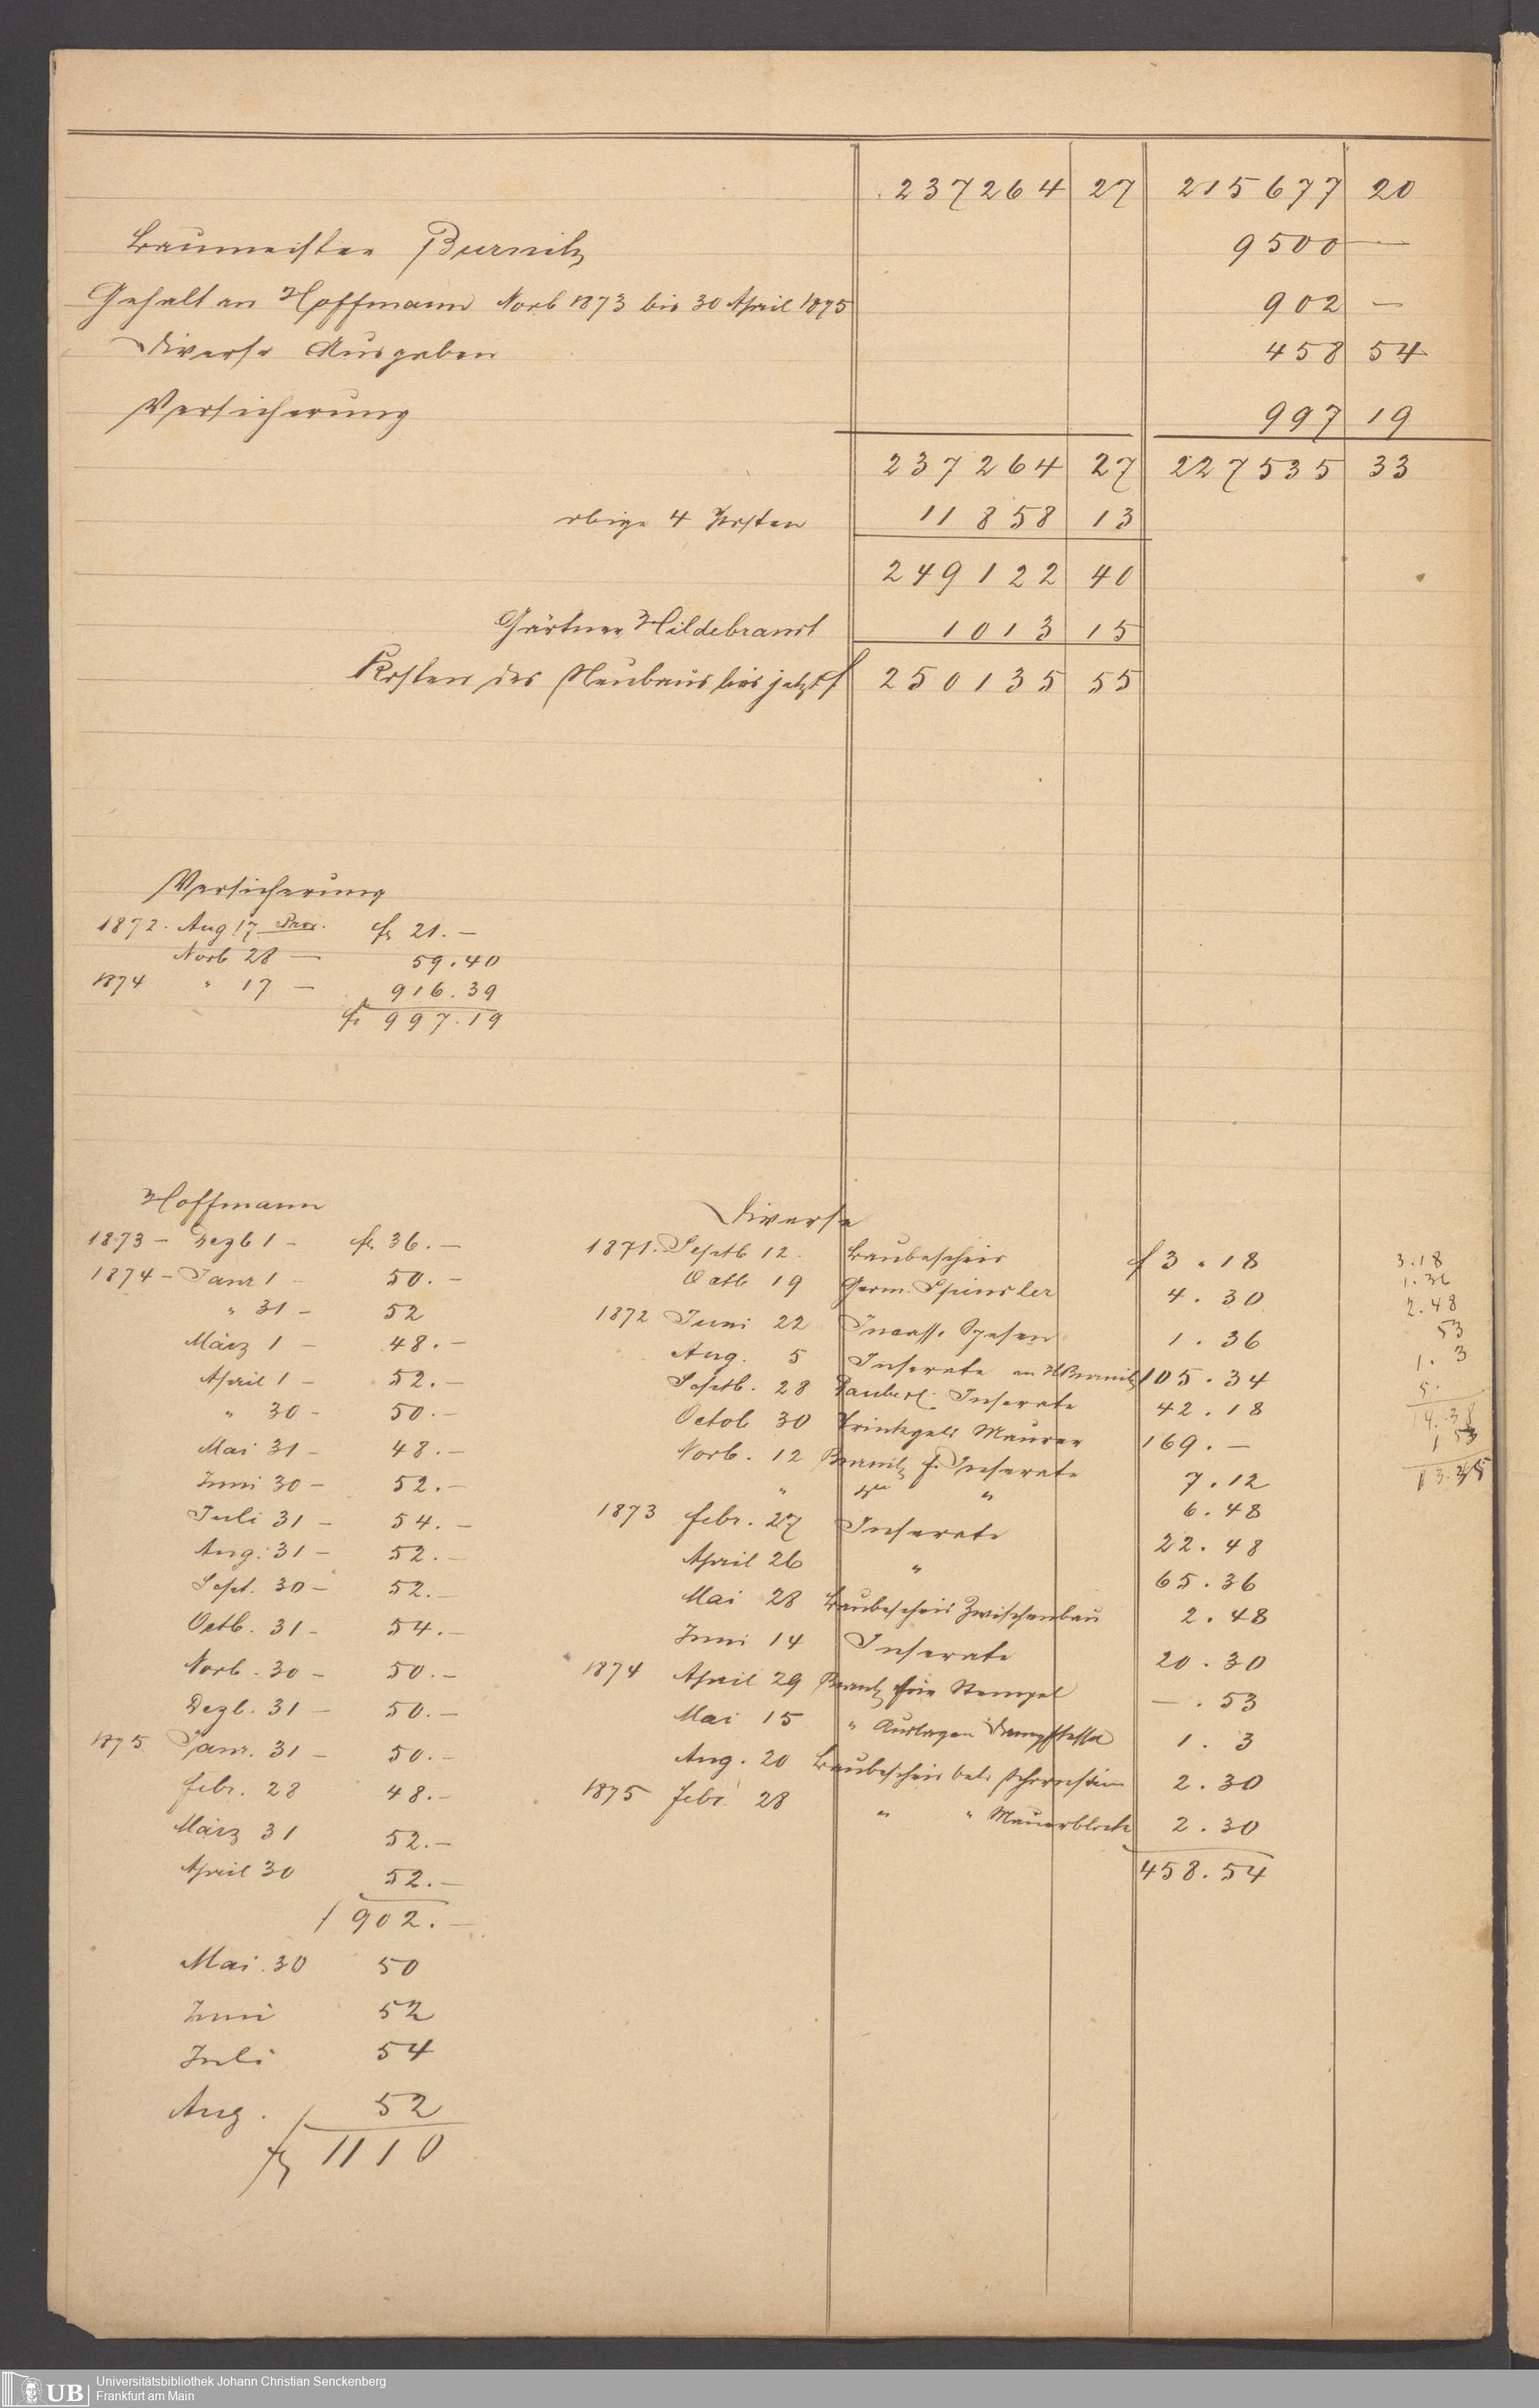 237264 27 215677 20
Baumeister Burnitz 9500 —
Gehalt an Hoffmann Novb 1873 bis 30 April 1875 902 —
Diverse Ausgaben 458 54
Versicherung 997 19
237264 27 227535 33
obige 4 Posten 11858 13
249122 40
Gärtner Hildebrandt 1013 15
Kosten des Neubaus bis jetzt f 250135 55
Versicherung
1872. Aug 17 Prov. fl 21. —
Novb 28 — 59.40
1874 " 17 — 916.39
fl 997.19
Hoffmann
1873 — Dezb 1 — fl. 36. —
1874 — Janr 1 — 50. —
" 31 — 52
März 1 — 48. —
April 1 — 52. —
" 30 — 50. —
Mai 31 — 48. —
Juni 30 — 52. —
Juli 31 — 54. —
Aug. 31 — 52. —
Sept. 30 — 52. —
Octb. 31 — 54. —
Novb. 30 — 50. —
Dezb. 31 — 50. —
1875 Janr. 31 — 50. —
Febr. 28 48. —
März 31 52. —
April 30 52. —
f 902. —
Mai. 30 50
Juni 52
Juli 54
Aug. 52
fl 1110
Diverse
1871. Septb 12. Baubescheid f 3.18
Octb 19 Germ. 4.30
1872 Juni 22 Incasso Spesen 1.36
Aug. 5 Inserate an Burnitz 105.34
Septb. 28 Inserate 42.18
Octob 30 Trinkgeld Maurer 169. —
Novb. 12 Burnitz f. Inserate 7.12
" dto " 6.48
1873 Febr. 27 Inserate 22.48
April 26 " 65.36
Mai 28 Baubescheid Zwischenbau 2.48
Juni 14 Inserate 20.30
1874 April 29 für Stempel — .53
Mai 15 " Auslagen Dampfkessel 1.3
Aug. 20 Baubescheid Schornstein 2.30
1875 Febr. 28 " " Mauerblock 2.30
458.54
3.18
1.36
2.48
53
1.3
5.
14.38
1 53
13.45
UB Universitätsbibliothek Johann Christian Senckenberg
Frankfurt am Main